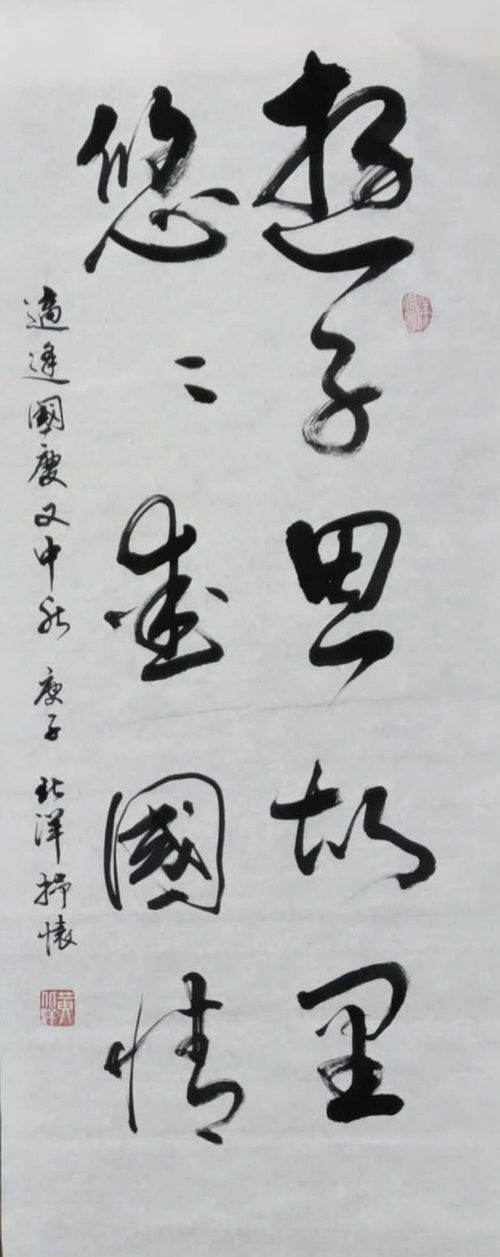 遊子思故里
悠〻愛國情
適逢國慶又中秋 庚子 北洋抒懷